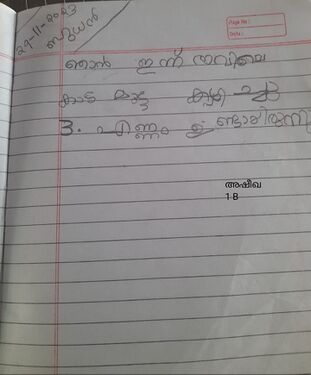 29-11-2023
ബുധൻ
Page No:
Date:
ഞാൻ ഇന്ന് രാവിലെ
കാട മുട്ട കഴിച്ചു
3. എണ്ണം ഉണ്ടായിരുന്നു
അഷീഖ
1 B